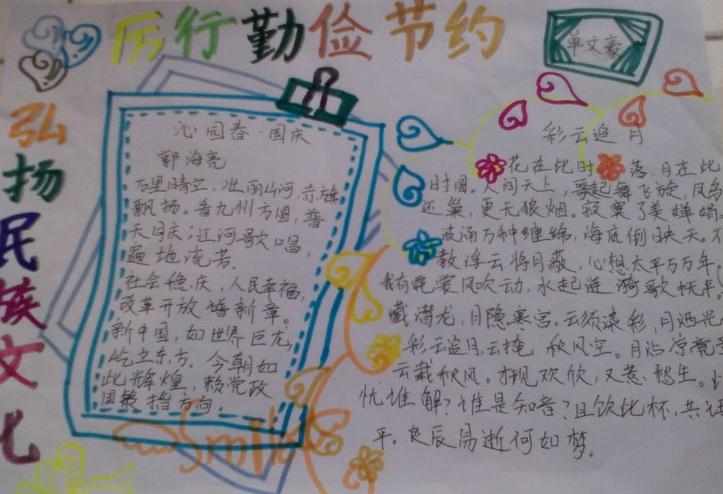 厉行勤俭节约
弘扬民族文化
沁园春·国庆
郭海亮
万里晴空,壮丽山河,赤旗
飘扬。看九州方圆,普
天同庆;江河歌唱,
遍地流芳。
社会稳庆,人民幸福,
改革开放谱新章。
新中国,如世界巨龙,
屹立东方。今朝如
此辉煌,赖党政
国策指方向。
Smile
彩云追月
花在此时 落月在此
时圆。人间天上,
还巢,更无狼烟。寂寞了
波涌万种缠绵,海底倒映天。
教浮云将月蔽,心想太平万万年,
风吹动,水起涟漪歌
潜龙,月隐寒宫,云须染彩,月洒光
彩云追月,云掩秋风空。月
云裁秋风。欢欣,又惹愁生。
忧谁解?谁是知音?且饮此杯,共
平。良辰易逝何如梦。